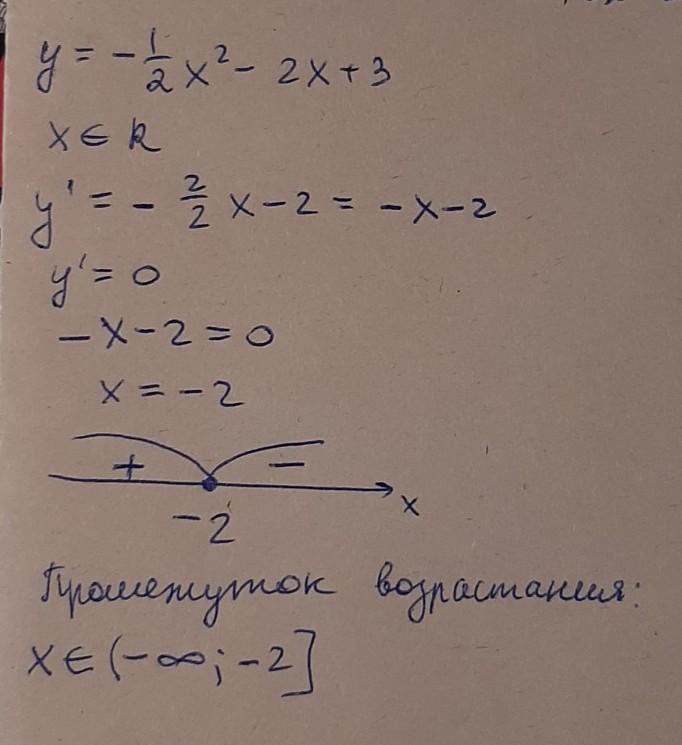 y = -1/2 x² - 2x + 3
x ∈ R
y' = - 2/2 x - 2 = -x - 2
y' = 0
-x - 2 = 0
x = -2
+ -
-2 x
Промежуток возрастания:
x ∈ (-∞; -2]